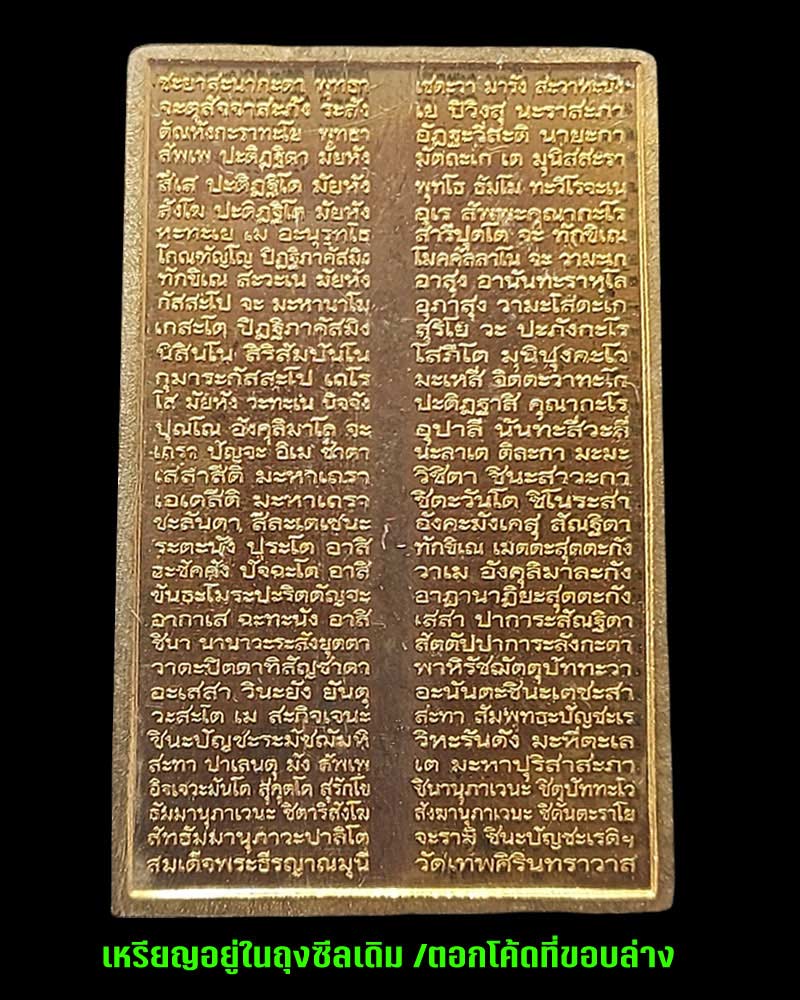 ชะยาสะนากะตา พุทธา เชตะวา มารัง สะวาหะนัง
จะตุสัจจาสะภัง ระสัง เย ปิวิงสุ นะราสะภา
ตัณหังกะราทะโย พุทธา อัฏฐะวีสะติ นายะกา
สัพเพ ปะติฏฐิตา มัยหัง มัตถะเก เต มุนิสสะรา
สีเส ปะติฏฐิโต มัยหัง พุทโธ ธัมโม ทะวิโรจะเน
สังโฆ ปะติฏฐิโต มัยหัง อุเร สัพพะคุณากะโร
หะทะเย เม อะนุรุทโธ สารีปุตโต จะ ทักขิเณ
โกณฑัญโญ ปิฏฐิภาคัสมิง โมคคัลลาโน จะ วามะเก
ทักขิเณ สะวะเน มัยหัง อาสุง อานันทะราหุโล
กัสสะโป จะ มะหานาโม อุภาสุง วามะโสตะเก
เกสะโต ปิฏฐิภาคัสมิง สุริโย วะ ปะภังกะโร
นิสินโน สิริสัมปันโน โสภิโต มุนิปุงคะโว
กุมาระกัสสะโป เถโร มะเหสี จิตตะวาทะโก
โส มัยหัง วะทะเน นิจจัง ปะติฏฐาสิ คุณากะโร
ปุณโณ อังคุลิมาโล จะ อุปาลี นันทะสีวะลี
เถรา ปัญจะ อิเม ชาตา นะลาเต ติละกา มะมะ
เสสาสีติ มะหาเถรา วิชิตา ชินะสาวะกา
เอเตสีติ มะหาเถรา ชิตะวันโต ชิโนระสา
ชะลันตา สีละเตเชนะ อังคะมังเคสุ สัณฐิตา
ระตะนัง ปุระโต อาสิ ทักขิเณ เมตตะสุตตะกัง
ธะชัคคัง ปัจฉะโต อาสิ วาเม อังคุลิมาละกัง
ขันธะโมระปะริตตัญจะ อาฏานาฏิยะสุตตะกัง
อากาเส ฉะทะนัง อาสิ เสสา ปาการะสัณฐิตา
ชินา นานาวะระสังยุตตา สัตตัปปาการะลังกะตา
วาตะปิตตาทิสัญชาตา พาหิรัชฌัตตุปัททะวา
อะเสสา วินะยัง ยันตุ อะนันตะชินะเตชะสา
วะสะโต เม สะกิจเจนะ สะทา สัมพุทธะปัญชะเร
ชินะปัญชะระมัชฌัมหิ วิหะรันตัง มะหีตะเล
สะทา ปาเลนตุ มัง สัพเพ เต มะหาปุริสาสะภา
อิจเจวะมันโต สุคุตโต สุรักโข ชินานุภาเวนะ ชิตุปัททะโว
ธัมมานุภาเวนะ ชิตาริสังโฆ สังฆานุภาเวนะ ชิตันตะราโย
สัทธัมมานุภาวะปาลิโต จะรามิ ชินะปัญชะเรติฯ
สมเด็จพระธีรญาณมุนี วัดเทพศิรินทราวาส
เหรียญอยู่ในถุงซีลเดิม /ตอกโค้ดที่ขอบล่าง